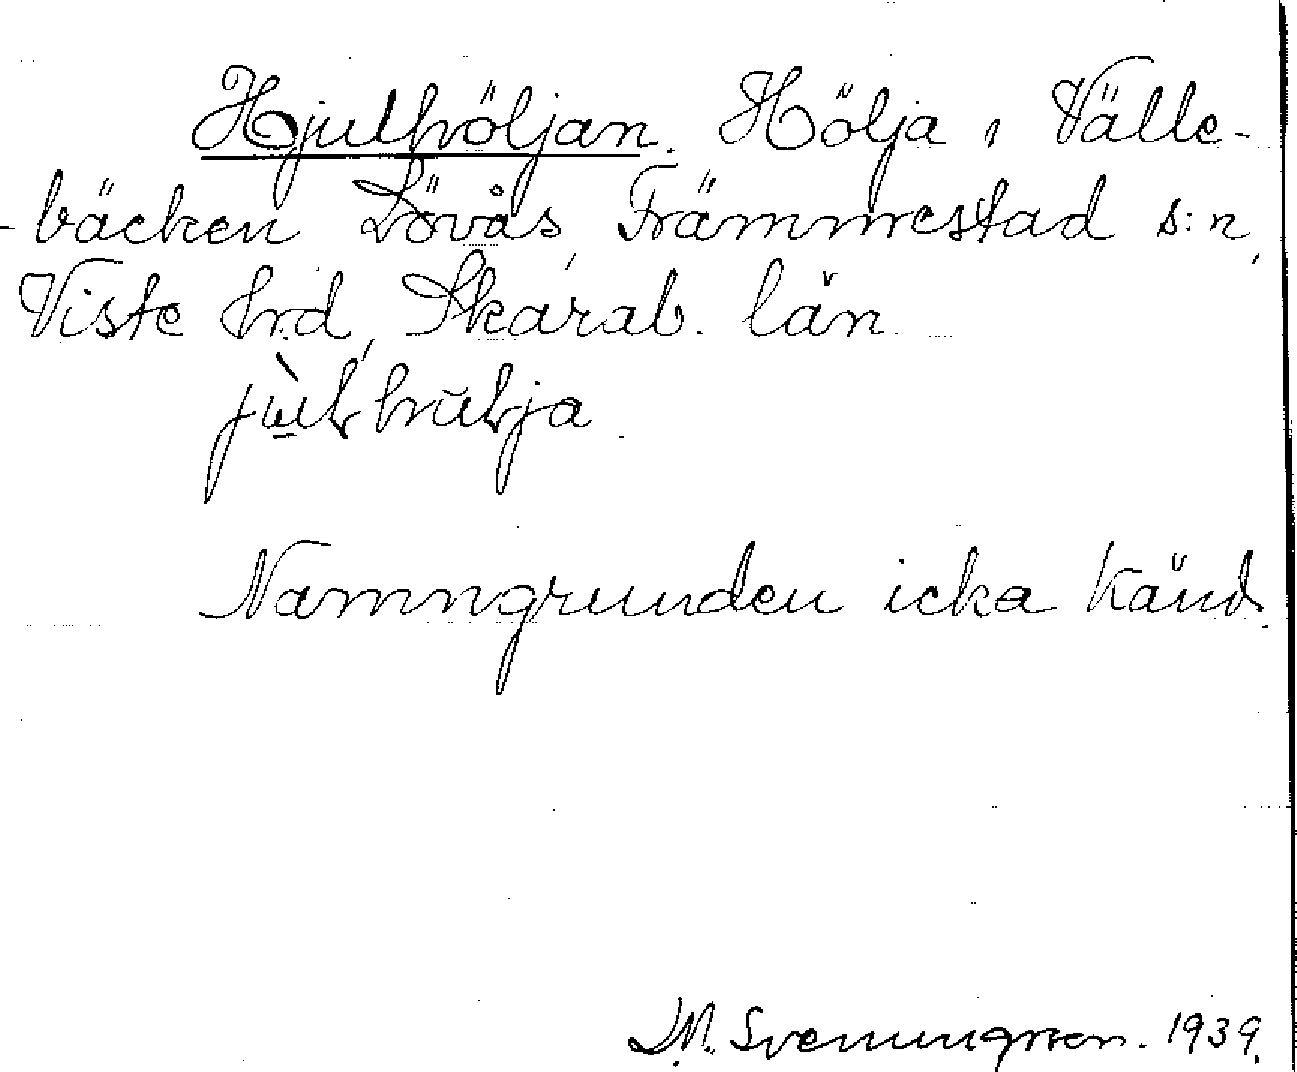 Hjulhöljan. Hölja i Välle-
-bäcken Lövås, Främmestad s:n,
Viste hrd, Skarab. län.
Namngrunden icka känd.
D.M. Svenningsson. 1939.